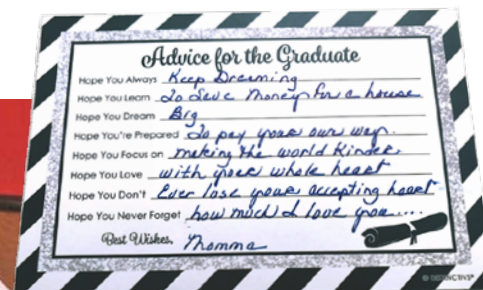 Advice for the Graduate
Hope You Always Keep Dreaming
Hope You Learn To Save Money for a house
Hope You Dream Big
Hope You're Prepared To pay your own way.
Hope You Focus on making the world Kinder.
Hope You Love with your whole heart
Hope You Don't Ever lose your accepting heart
Hope You Never Forget how much I love you....
Best Wishes, Momma